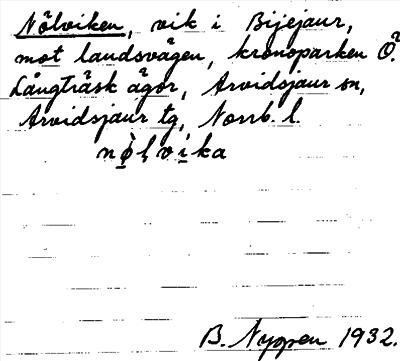 Nölviken, vik i Bijejaur,
mot landsvägen, kronoparken Ö.
Långträsk ägor, Arvidsjaur sn,
Arvidsjaur tg, Norrb. l.
nø̀lvika
B. Nyppen 1932.